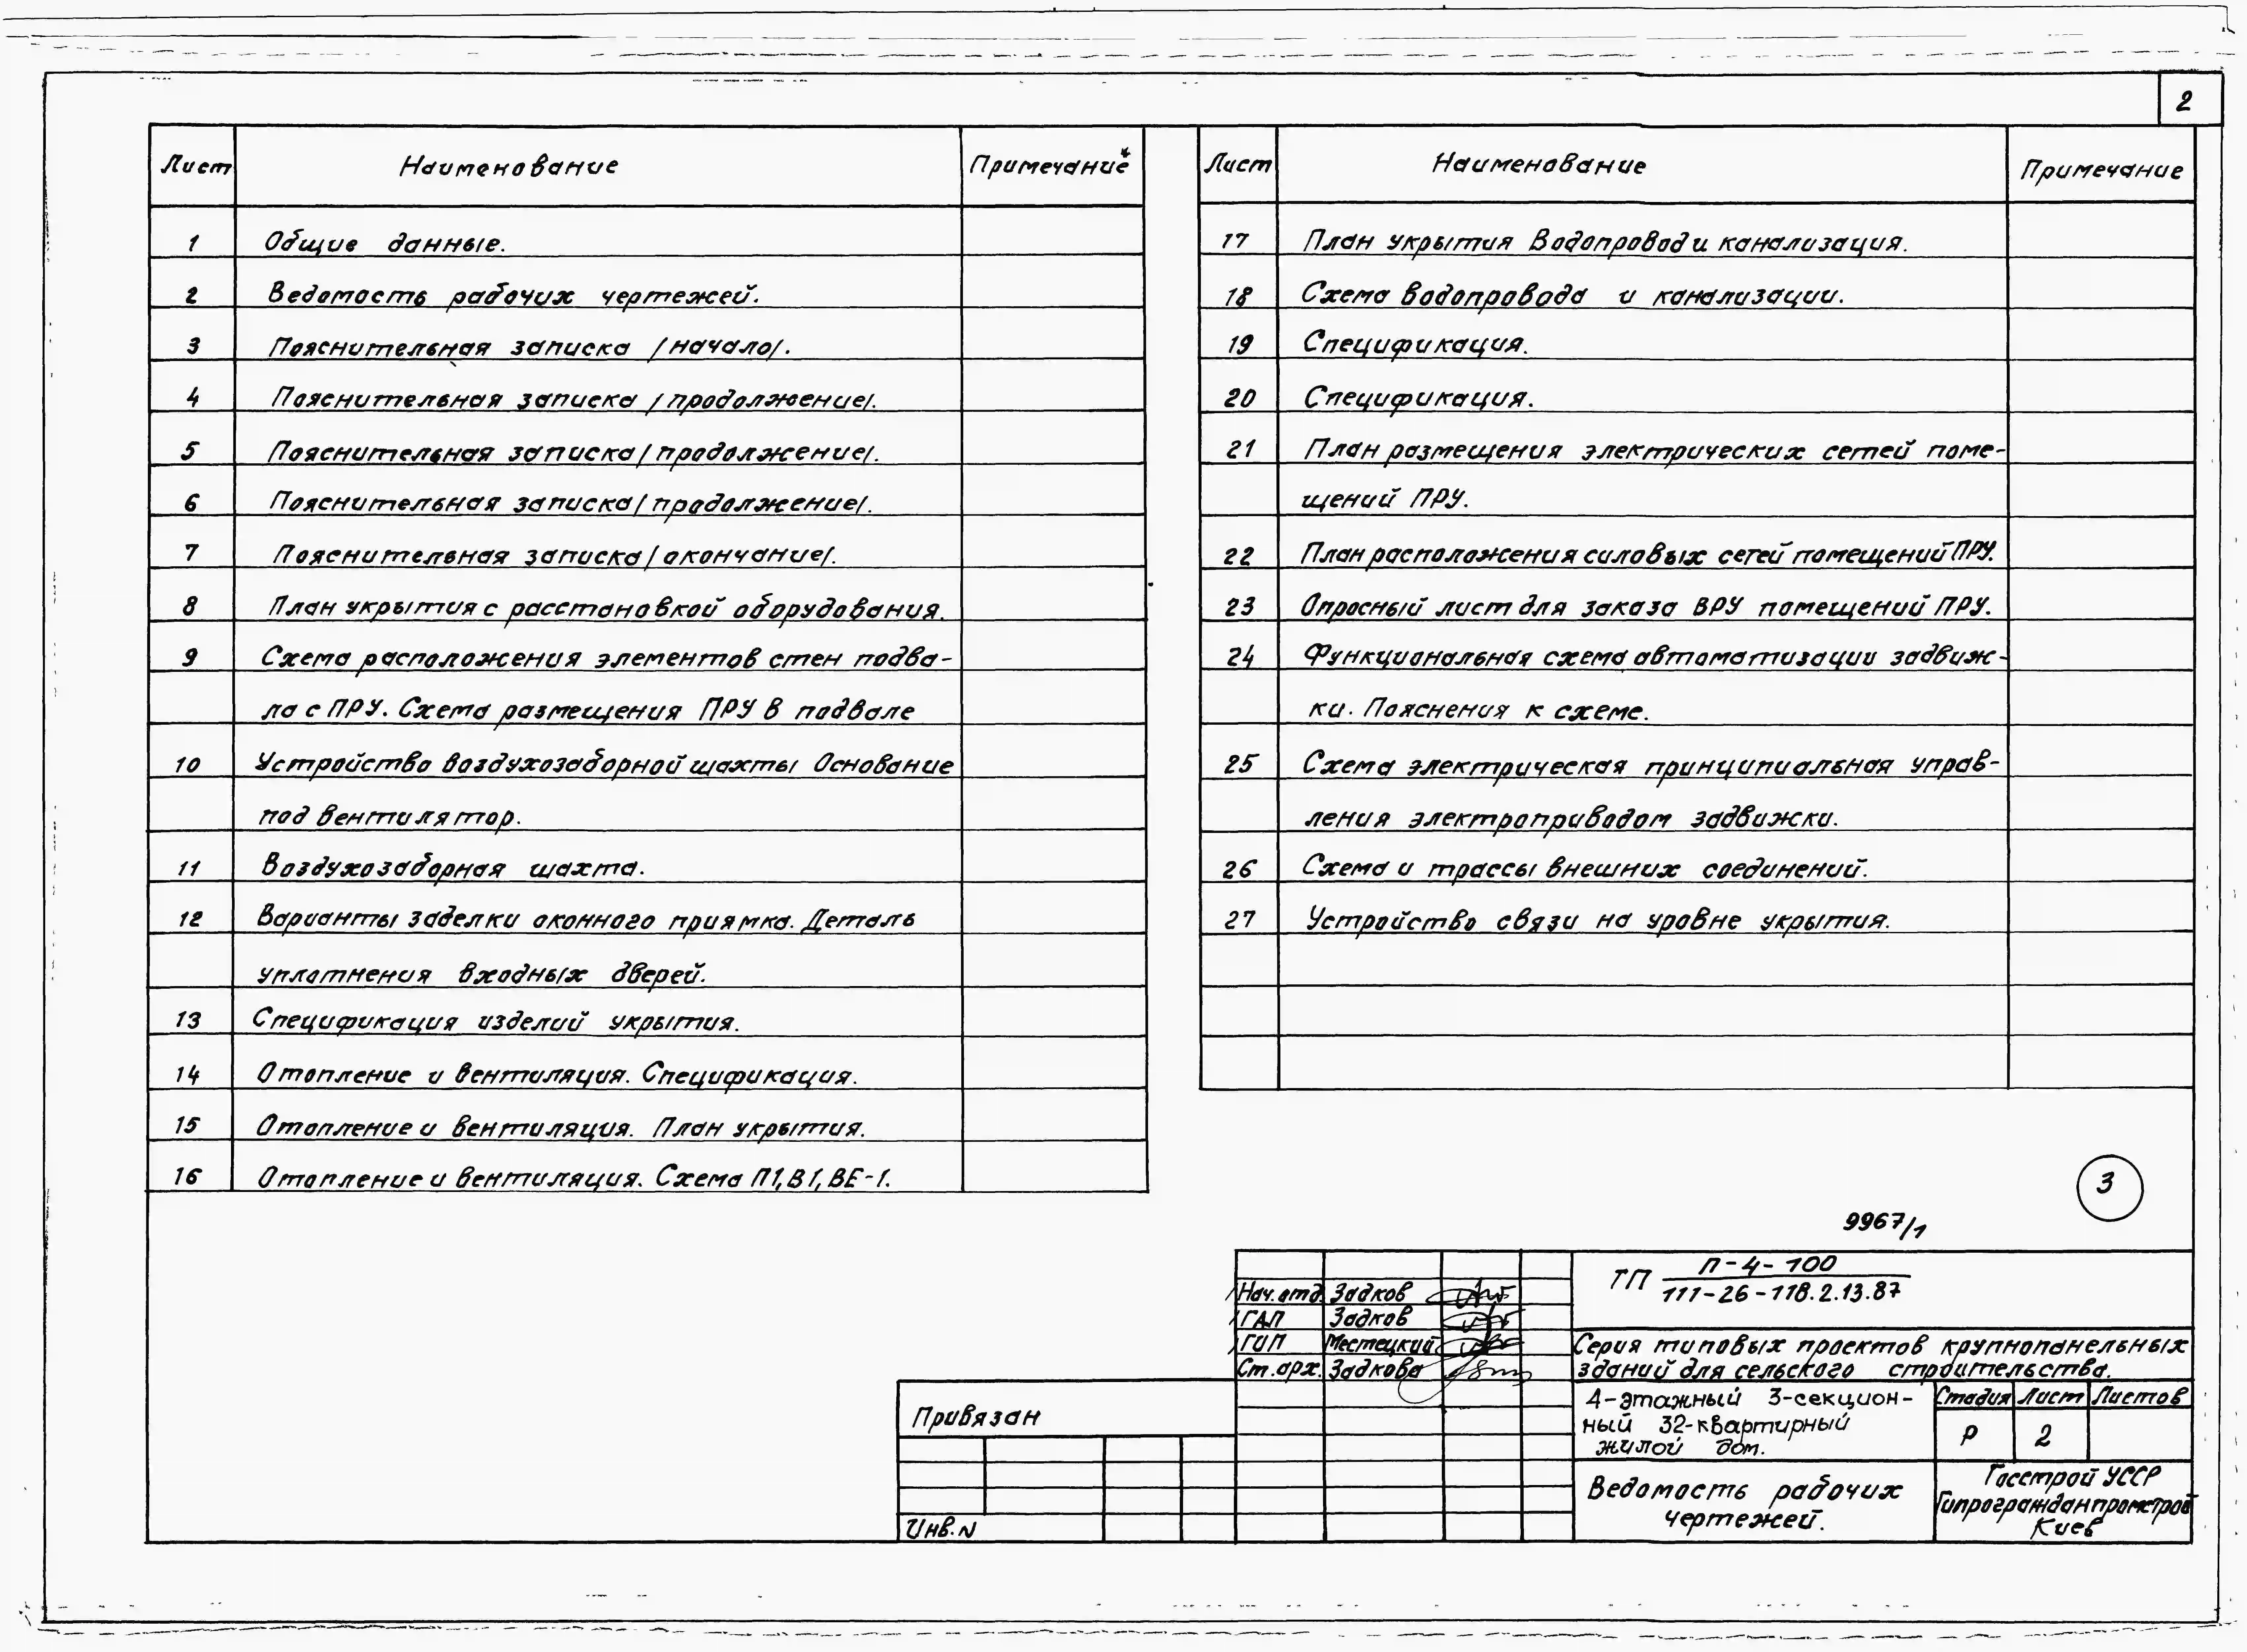 2
Лист Наименование Примечание
1 Общие данные.
2 Ведомость рабочих чертежей.
3 Пояснительная записка /начало/.
4 Пояснительная записка /продолжение/.
5 Пояснительная записка /продолжение/.
6 Пояснительная записка /продолжение/.
7 Пояснительная записка /окончание/.
8 План укрытия с расстановкой оборудования.
9 Схема расположения элементов стен подва-
ла с ПРУ. Схема размещения ПРУ в подвале
10 Устройство воздухозаборной шахты Основание
под вентилятор.
11 Воздухозаборная шахта.
12 Варианты заделки оконного приямка. Деталь
уплотнения входных дверей.
13 Спецификация изделий укрытия.
14 Отопление и вентиляция. Спецификация.
15 Отопление и вентиляция. План укрытия.
16 Отопление и вентиляция. Схема П1, В1, ВЕ-1.
Лист Наименование Примечание
17 План укрытия Водопровод и канализация.
18 Схема водопровода и канализации.
19 Спецификация.
20 Спецификация.
21 План размещения электрических сетей поме-
щений ПРУ.
22 План расположения силовых сетей помещений ПРУ.
23 Опросный лист для заказа ВРУ помещений ПРУ.
24 Функциональная схема автоматизации задвиж-
ки. Пояснения к схеме.
25 Схема электрическая принципиальная управ-
ления электроприводом задвижки.
26 Схема и трассы внешних соединений.
27 Устройство связи на уровне укрытия.
3
9967/1
ТП П-4-100
111-26-118.2.13.87
Нач. отд. Задков
ГАП Задков
ГИП Местецкий
Ст. арх. Задкова
Серия типовых проектов крупнопанельных
зданий для сельского строительства.
4-этажный 3-секцион-
ный 32-квартирный
жилой дом.
Стадия Лист Листов
Р 2
Ведомость рабочих
чертежей.
Госстрой УССР
Гипрогражданпромстрой
Киев
Привязан
Инв. N